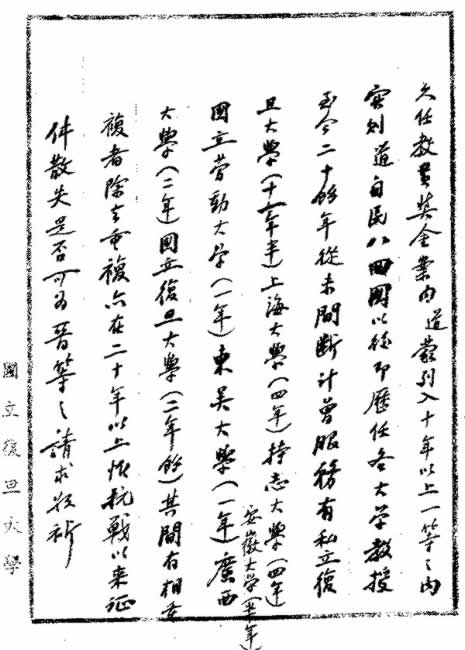 久任教員獎金案內 道蒙列入十年以上一等之內
實則道自民八回國以後即歷任各大学教授
至今二十餘年從未間斷計曾服務有私立復
旦大學(十年半)上海大學(四年)持志大學(四年)
安徽大學(半年)
國立劳動大学(一年)東吴大學(一年)廣西
大學(二年)國立復旦大學(二年餘)其間有相重
複者除去重複亦在二十年以上惟抗戰以來証
件散失是否可為晉等之請求敬祈
國立復旦大學